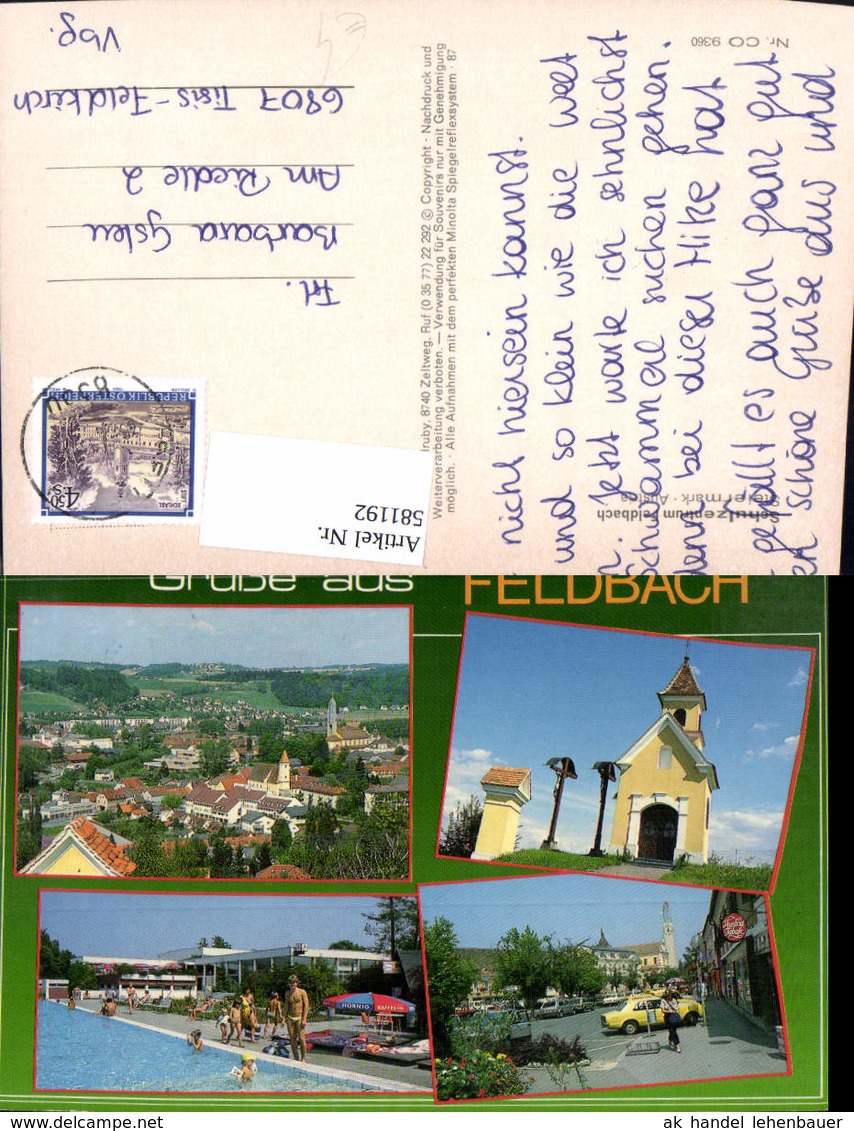 Nr. CO 9360
Schulzentrum Feldbach
Steiermark · Austria
nicht hiersein kannst.
und so klein wie die Welt
Jetzt warte ich sehnlichst
Schlammeil suchen gehen.
bei dieser Hike hat
gefällt es auch ganz gut
schöne Grüße aus und
Alle Aufnahmen mit dem perfekten Minolta Spiegelreflexsystem · 87
möglich. ·
Weiterverarbeitung verboten. — Verwendung für Souvenirs nur mit Genehmigung
lruby, 8740 Zeltweg, Ruf (0 35 77) 22 292 © Copyright · Nachdruck und
REPUBLIK ÖSTERREICH
STIFT
4.50 S
Artikel Nr.
581192
Frl.
Barbara Gsteu
Am Riedle 2
6807 Tisis-Feldkirch
Vbg.
Grüße aus FELDBACH
Austria
Tabak
HORNIG KAFFEE
ak handel lehenbauer